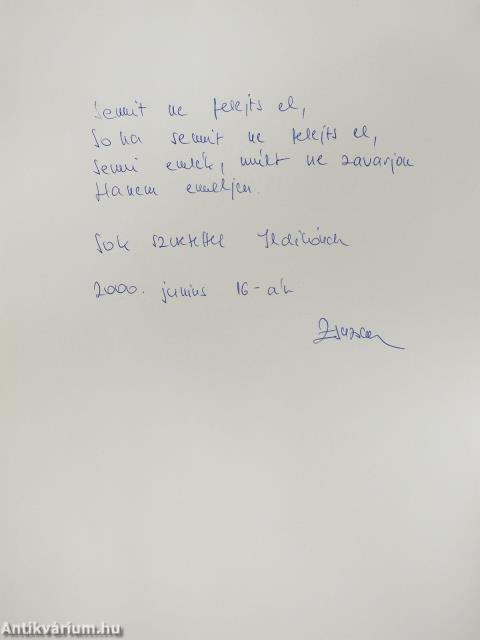 Semmit ne felejts el,
Soha semmit ne felejts el,
Semmi emlék, múlt ne zavarjon
Hanem emeljen.
Sok szeretettel Ildikónak
2000. június 16-án
Zsuzsa
Antikvárium.hu